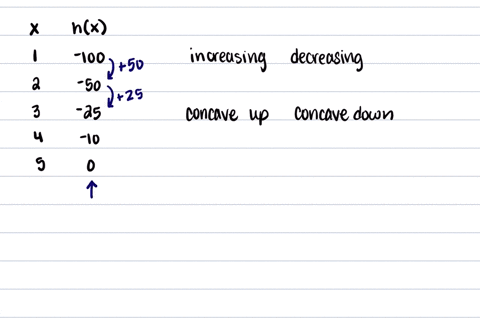 x h(x)
1 -100 increasing decreasing
+50
2 -50
+25
3 -25 concave up concave down
4 -10
5 0